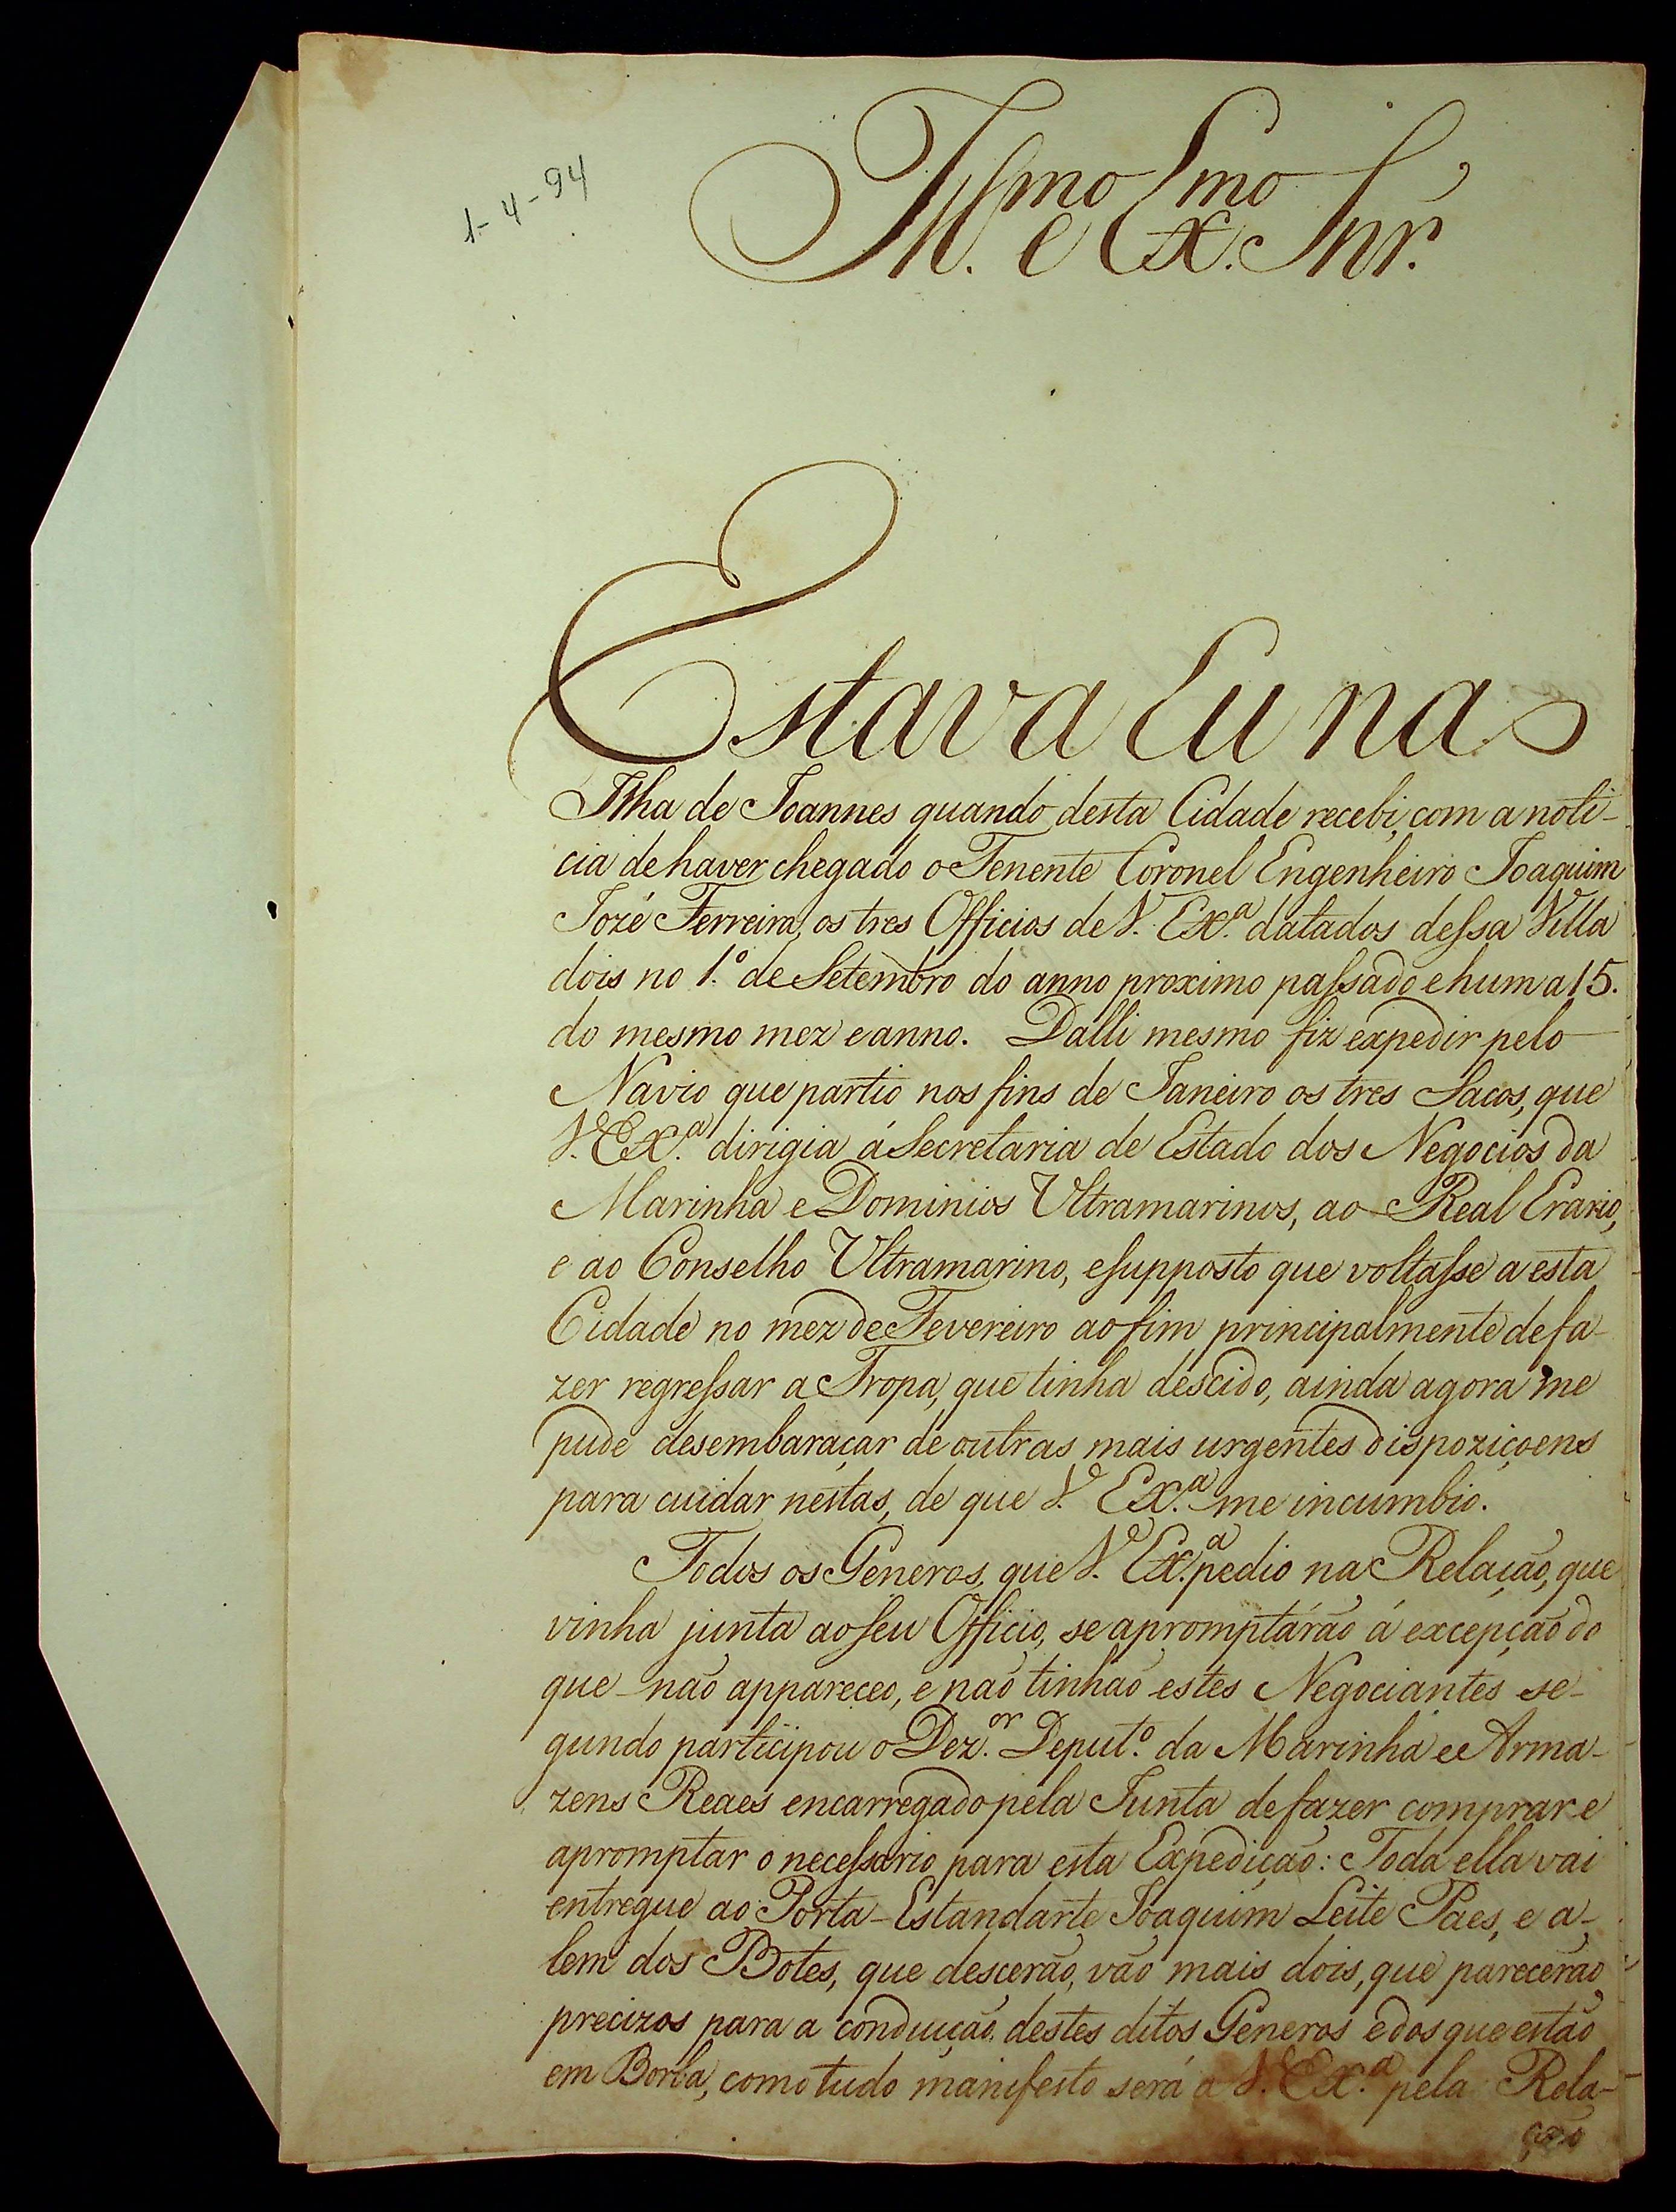 1-4-94
Ill.mo e Ex.mo Snr.
Estava Eu na
Ilha de Joannes quando desta Cidade recebi, com a noti-
cia de haver chegado o Tenente Coronel Engenheiro Joaquim
Jozé Ferreira, os tres Officios de V. Ex.a datados dessa Villa
dois no 1.o de Setembro do anno proximo passado e hum a 15.
do mesmo mez e anno. Dalli mesmo fiz expedir pelo
Navio que partio nos fins de Janeiro os tres Sacos, que
V. Ex.a dirigia á Secretaria de Estado dos Negocios da
Marinha e Dominios Ultramarinos, ao Real Erario,
e ao Conselho Ultramarino, e supposto que voltasse a esta
Cidade no mez de Fevereiro ao fim principalmente de fa-
zer regressar a Tropa, que tinha descido, ainda agora me
pude desembaraçar de outras mais urgentes dispoziçoens
para cuidar nestas, de que V. Ex.a me incumbio.
Todos os Generos, que V. Ex.a pedio na Relação, que
vinha junta ao seu Officio, se apromptárão á excepção do
que não appareceo, e não tinhão estes Negociantes se-
gundo participou o Dez.or Deput.o da Marinha e Arma-
zens Reaes encarregado pela Junta de fazer comprar e
apromptar o necessario para esta Expedição: Toda ella vai
entregue ao Porta-Estandarte Joaquim Leite Paes, e a-
lem dos Botes, que descerão, vão mais dois, que parecerão
precizos para a conducção destes ditos Generos e dos que estão
em Borba, como tudo manifesto será a V. Ex.a pela Rela-
ção